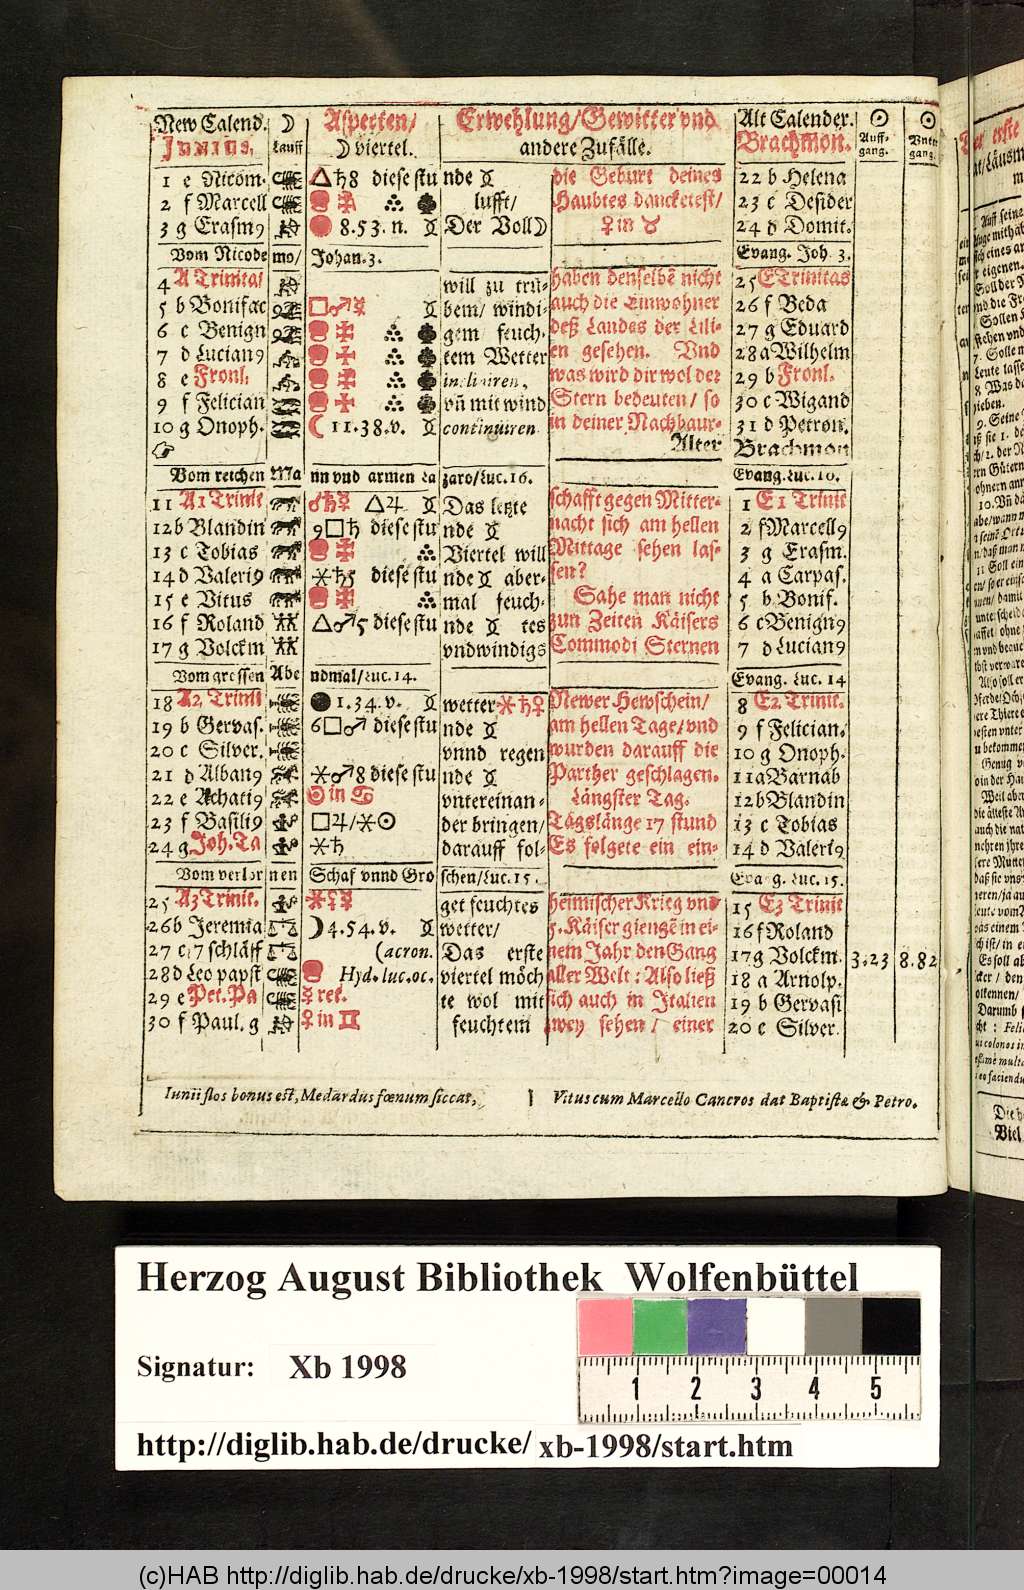 New Calend. ☽ Aspecten/ Erwehlung/Gewitter vnd Alt Calender. ☉ ☉
Junius. Lauff ☽ viertel. andere Zufälle. Brachmon. Auff-gang. Vnter gang.
1 e Nicom. △♄8 diese stunde die Geburt deines 22 b Helena
2 f Marcell lufft/ Haubtes danckete st/ 23 c Desider
3 g Erasm9 8.53. n. Der Voll☽ ♀ in ♉ 24 d Domit.
Vom Nicodemo/ Johan. 3. Evang. Joh. 3.
4 A Trinita/ will zu trü- haben denselbē nicht 25 E Trinitas
5 b Bonifac □♂☿ bem/ windi- auch die Einwohner 26 f Beda
6 c Benign gem feuch- deß Landes der Lili- 27 g Eduard
7 d Lucian9 tem Wetter en gesehen. Vnd 28 a Wilhelm
8 e Fronl. incliniren, was wird dir wol der 29 b Fronl.
9 f Felician vñ mit wind Stern bedeuten/ so 30 c Wigand
10 g Onoph. ☾ 11.38.v. continüiren in deiner Nachbaur- 31 d Petron.
Alter Brachmon
Vom reichen Mann vnd armen Lazaro/Luc. 16. Evang. Luc. 16.
11 A1 Trinit ♂♄☿ △♃ Das letzte schafft gegen Mitter- 1 E1 Trinit
12 b Blandin 9□♄ diese stunde nacht sich am hellen 2 f Marcell9
13 c Tobias Viertel will Mittage sehen las- 3 g Erasm.
14 d Valeri9 ⚹♄5 diese stunde aber- sen? 4 a Carpas.
15 e Vitus mal feuch- Sahe man nicht 5 b Bonif.
16 f Roland △♂5 diese stunde tes zun Zeiten Käisers 6 c Benign9
17 g Volckm vnd windigs Commodi Sternen 7 d Lucian9
Vom grossen Abendmal/Luc. 14. Evang. Luc. 14
18 A2 Trinit 1.34. v. wetter ⚹♄♀ Newer Hewschein/ 8 E2 Trinit.
19 b Gervas. 6□♂ diese stunde am hellen Tage/ vnd 9 f Felician.
20 c Silver. vnnd regen wurden darauff die 10 g Onoph.
21 d Alban9 ⚹♂8 diese stunde Parther geschlagen. 11 a Barnab
22 e Achati9 ☉ in ♋ vntereinan- Längster Tag. 12 b Blandin
23 f Basili9 □♃/⚹☉ der bringen/ Tagslänge 17 stund 13 c Tobias
24 g Joh. Ta ⚹♄ darauff fol- Es folgete ein ein- 14 d Valeri9
Vom verlornen Schaf vnnd Groschen/Luc. 15. Evang. Luc. 15.
25 A3 Trinit. get feuchtes heimischer Krieg vnd 15 E3 Trinit
26 b Jeremia ☽ 4.54. v. wetter/ 5. Käiser giengē in ei- 16 f Roland
27 c 7 schläff (acron. Das erste nem Jahr den Gang 17 g Volckm. 3.23 8.82
28 d Leo papst Hyd. luc. oc. viertel möch aller Welt: Also ließ 18 a Arnolp.
29 e Pet. Pa ☿ ret. te wol mit sich auch in Italien 19 b Gervasi
30 f Paul. g ♀ in ♊ feuchtem zwey sehen/ einer 20 c Silver.
Iunii flos bonus est, Medardus fœnum siccat, Vitus cum Marcello Cancros dat Baptista & Petro.
Herzog August Bibliothek Wolfenbüttel
Signatur: Xb 1998
1 2 3 4 5
http://diglib.hab.de/drucke/ xb-1998/start.htm
(c)HAB http://diglib.hab.de/drucke/xb-1998/start.htm?image=00014